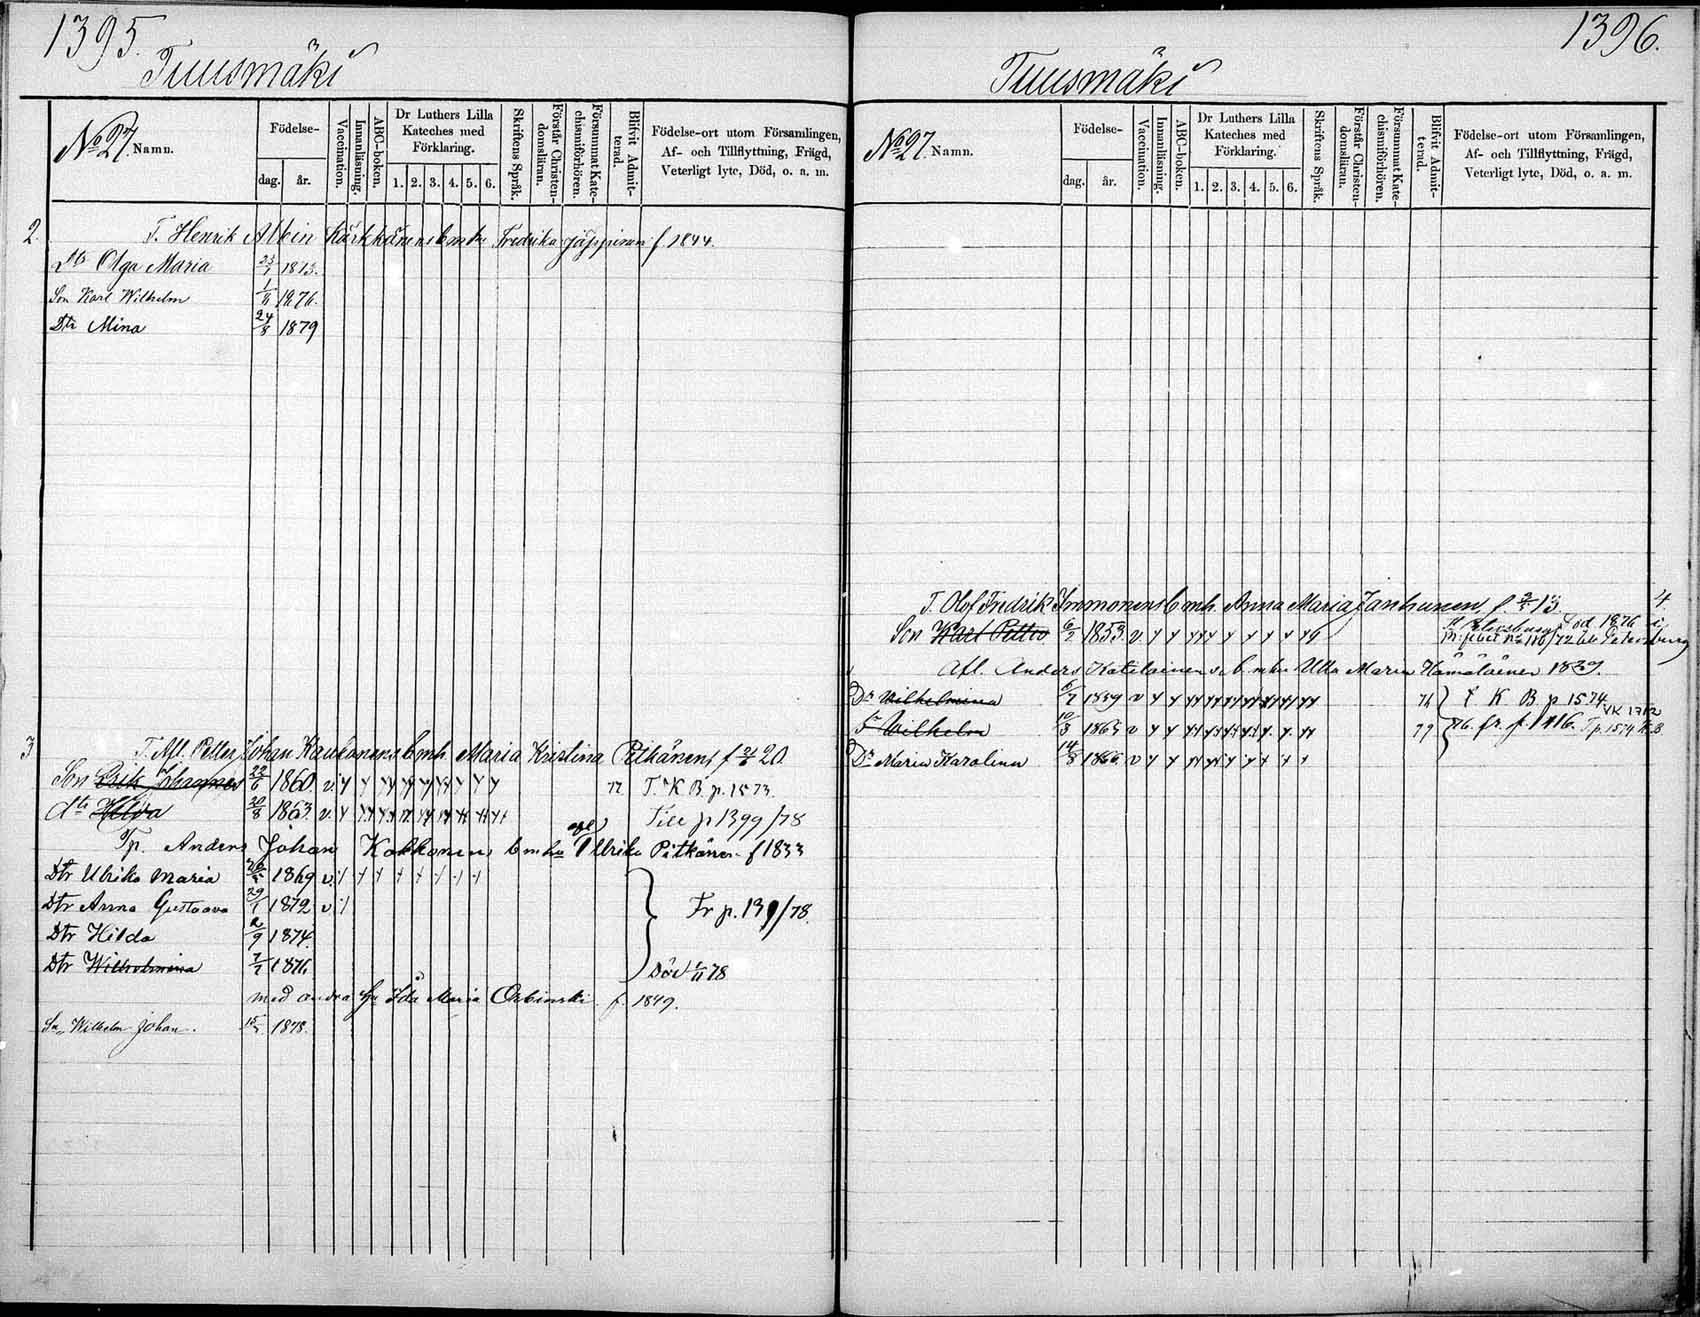 1395.
Tuusmäki
No 27. Namn.
Födelse-
dag. år.
Vaccination.
Innanläsning.
ABC-boken.
Dr Luthers Lilla Kateches med Förklaring.
1. 2. 3. 4. 5. 6.
Skriftens Språk.
Förstår Christendomsläran.
Försummat Katechismiförhören.
Blifvit Admitterad.
Födelse-ort utom Församlingen,
Af- och Tillflyttning, Frägd,
Veterligt lyte, Död, o. a. m.
2. T. Henrik Albin Kärkkäinens b m h Fredrika Jäppinen f 1844.
Dtr Olga Maria 23/1 1873.
Son Karl Wilhelm 1/11 1876.
Dtr Mina 24/8 1879
3 T. Afl. Petter Johan Kaukonens b mh. Maria Kristina Pitkänen, f 20
Son Erik Johannes 22/6 1860. v. 77 T. K B p. 1573.
dtr Hilda 20/8 1863. v. Till p 1399/78
Tp. Anders Johan Kokkonens b m h afl Ulrika Pitkänen f 1833
Dtr Ulrika Maria 1869 v.
Dtr Anna Gustaava 29/1 1872 v Fr p. /78.
Dtr Hilda 2/9 1874.
Dtr Wilhelmina 7/7 1876 Död 78
med andra Ida Maria Orbinski f. 1849.
Sn Wilhelm Johan. 1878.
1396.
Tuusmäki
No 27. Namn.
Födelse-
dag. år.
Vaccination.
Innanläsning.
ABC-boken.
Dr Luthers Lilla Kateches med Förklaring.
1. 2. 3. 4. 5. 6.
Skriftens Språk.
Förstår Christendomsläran.
Försummat Katechismiförhören.
Blifvit Admitterad.
Födelse-ort utom Församlingen,
Af- och Tillflyttning, Frägd,
Veterligt lyte, Död, o. a. m.
T. Olof Fredrik Immonens b mh. Anna Maria Janhunen, f. 13. 4.
Son Karl Petter 6/2 1853. v. död 1876 i
St Petersburg
/72 till Petersburg
Afl. Anders Katelainens b mh Ulla Maria Hämäläinen 1829.
Dr Wilhelmina 6/7 1859 v 74 K B p 1574
Sr Wilhelm 10/3 1863 v 77 76. fr. p. 1416. Tp. 1574 K.B
Dr Maria Karolina 14/8 1866. v